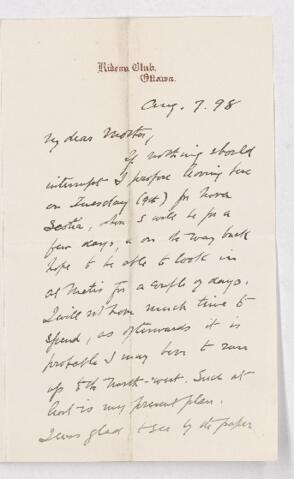 Rideau Club,
Ottawa.
Aug. 7. 98
My dear Mother,
If nothing should
interrupt I propose leaving here
on Tuesday (9th) for Nova
Scotia, where I will be for a
few days, & on the way back
hope to be able to look in
at Metis for a couple of days.
I will not have much time to
spend, as afterwards it is
probable I may have to run
up to the North-west. Such at
least is my present plan.
I was glad to see by the paper